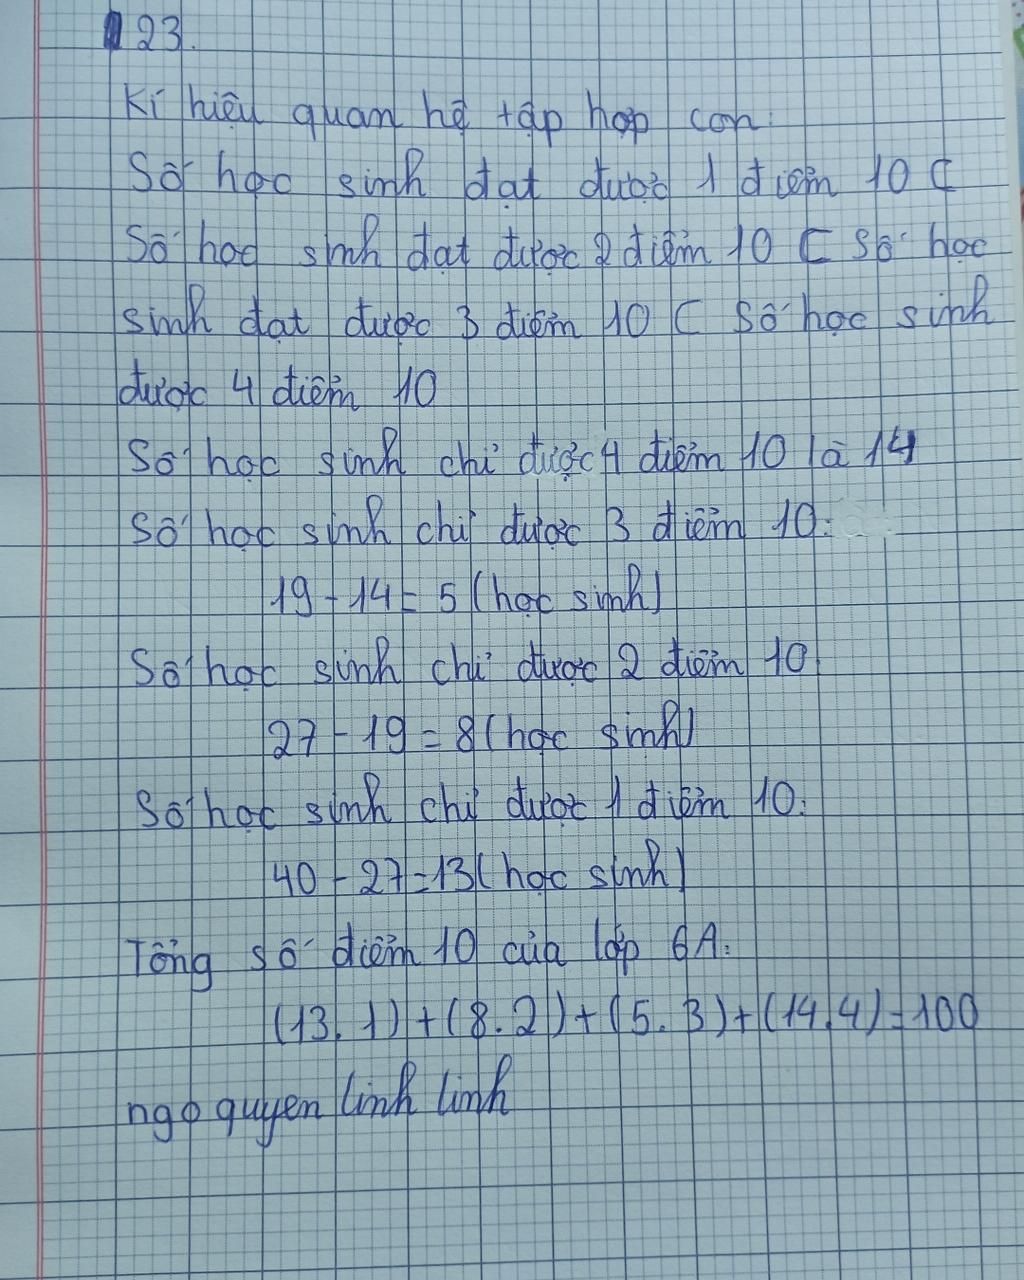 23.
Kí hiệu quan hệ tập hợp con:
Số học sinh đạt được 1 điểm 10 ⊂
Số học sinh đạt được 2 điểm 10 ⊂ Số học
sinh đạt được 3 điểm 10 ⊂ Số học sinh
được 4 điểm 10
Số học sinh chỉ được 4 điểm 10 là 14
Số học sinh chỉ được 3 điểm 10:
19 - 14 = 5 (học sinh)
Số học sinh chỉ được 2 điểm 10
27 - 19 = 8 (học sinh)
Số học sinh chỉ được 1 điểm 10:
40 - 27 = 13 (học sinh)
Tổng số điểm 10 của lớp 6A:
(13.1) + (8.2) + (5.3) + (14.4) = 100
ngo quyen linh linh